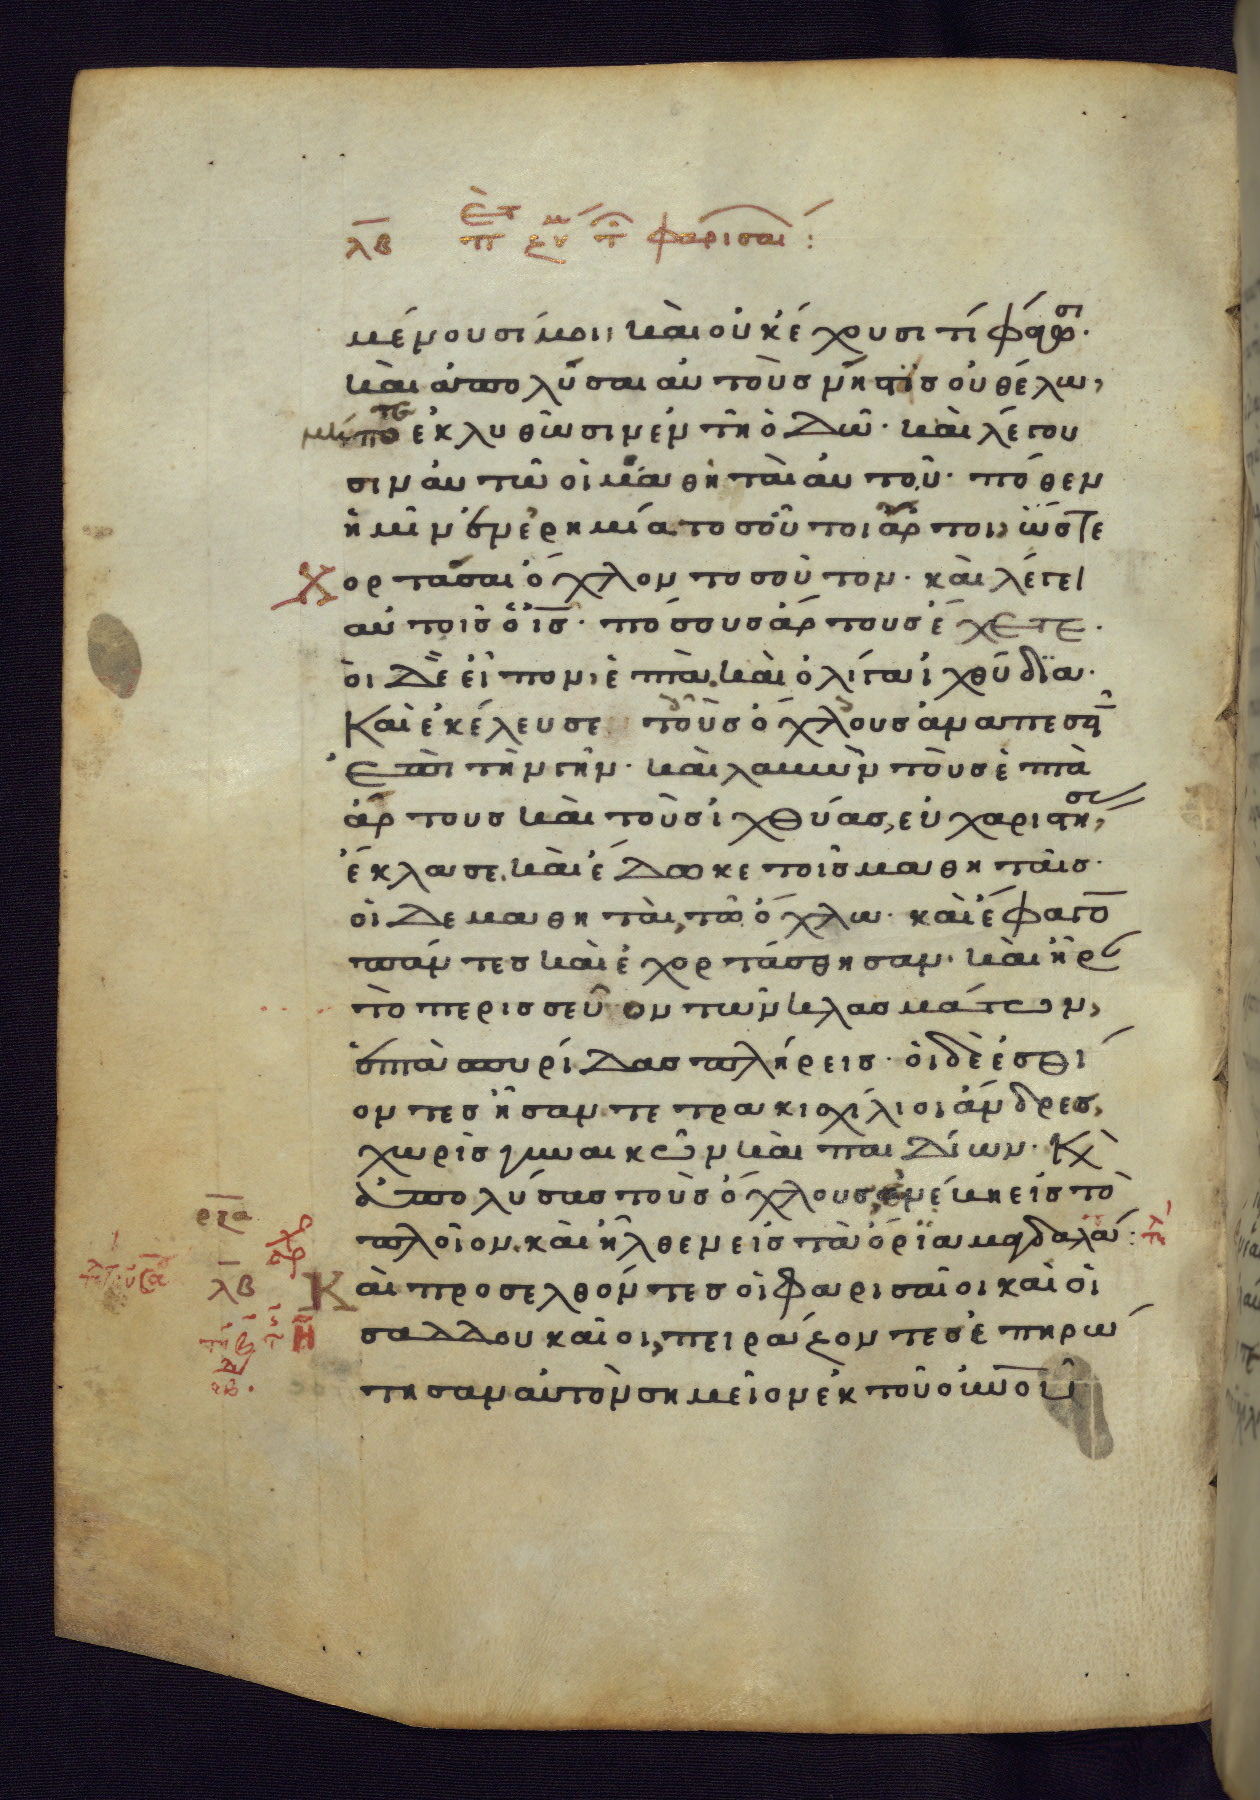 λβ φαρισαι :
μένουσί μοι, καὶ οὐκ έχουσι τί φάγωσι·
καὶ ἀπολῦσαι αὐτοὺσ νήστισ οὐ θέλω,
μήποτε ἐκλυθῶσιν ἐν τῆ ὁδῶ· καὶ λέγου
σιν αὐτῶ οἱ μαθηταὶ αὐτοῦ· πόθεν
ἡμῖν ἐν ἐρημία τοσοῦτοι άρτοι, ὥστε
χορτάσαι όχλον τοσοῦτον· καὶ λέγει
αὐτοῖσ ὁ ις· πόσουσ άρτουσ έχετε·
οἱ δὲ εἶπον, ἑπτὰ. καὶ ὀλίγα ἰχθύδϊα·
Καὶ ἐκέλευσε τοὺσ όχλουσ ἀναπεσεῖν
ἐπὶ τὴν γῆν· καὶ λαβὼν τοὺσ ἑπτὰ
άρτουσ καὶ τοὺσ ἰχθύασ, εὐχαριστήσασ,
έκλασε, καὶ έδωκε τοῖσ μαθηταῖσ·
οἱ δε μαθηταὶ, τῶ όχλω· καὶ έφαγον
πάντεσ καὶ ἐχορτάσθησαν· καὶ ἦραν
τὸ περισσεῦον τῶν κλασμάτων,
ἑπτὰ σπυρίδασ πλήρεισ· οἱ δὲ ἐσθί
οντεσ ἦσαν τετρακισχίλιοι άνδρεσ,
χωρὶσ γυναικῶν καὶ παιδίων· Κὶ
ἀπολύσασ τοὺσ όχλουσ, ἐνέβη εἰσ τὸ
πλοῖον. καὶ ἦλθεν εἰσ τὰ ὅρϊα μαγδαλά :
λβ Καὶ προσελθόντεσ οἱ φαρισαῖοι καὶ οἱ
σαδδουκαῖοι, πειράζοντεσ ἐπηρώ
τησαν αὐτὸν σημεῖον ἐκ τοῦ οὐνοῦ